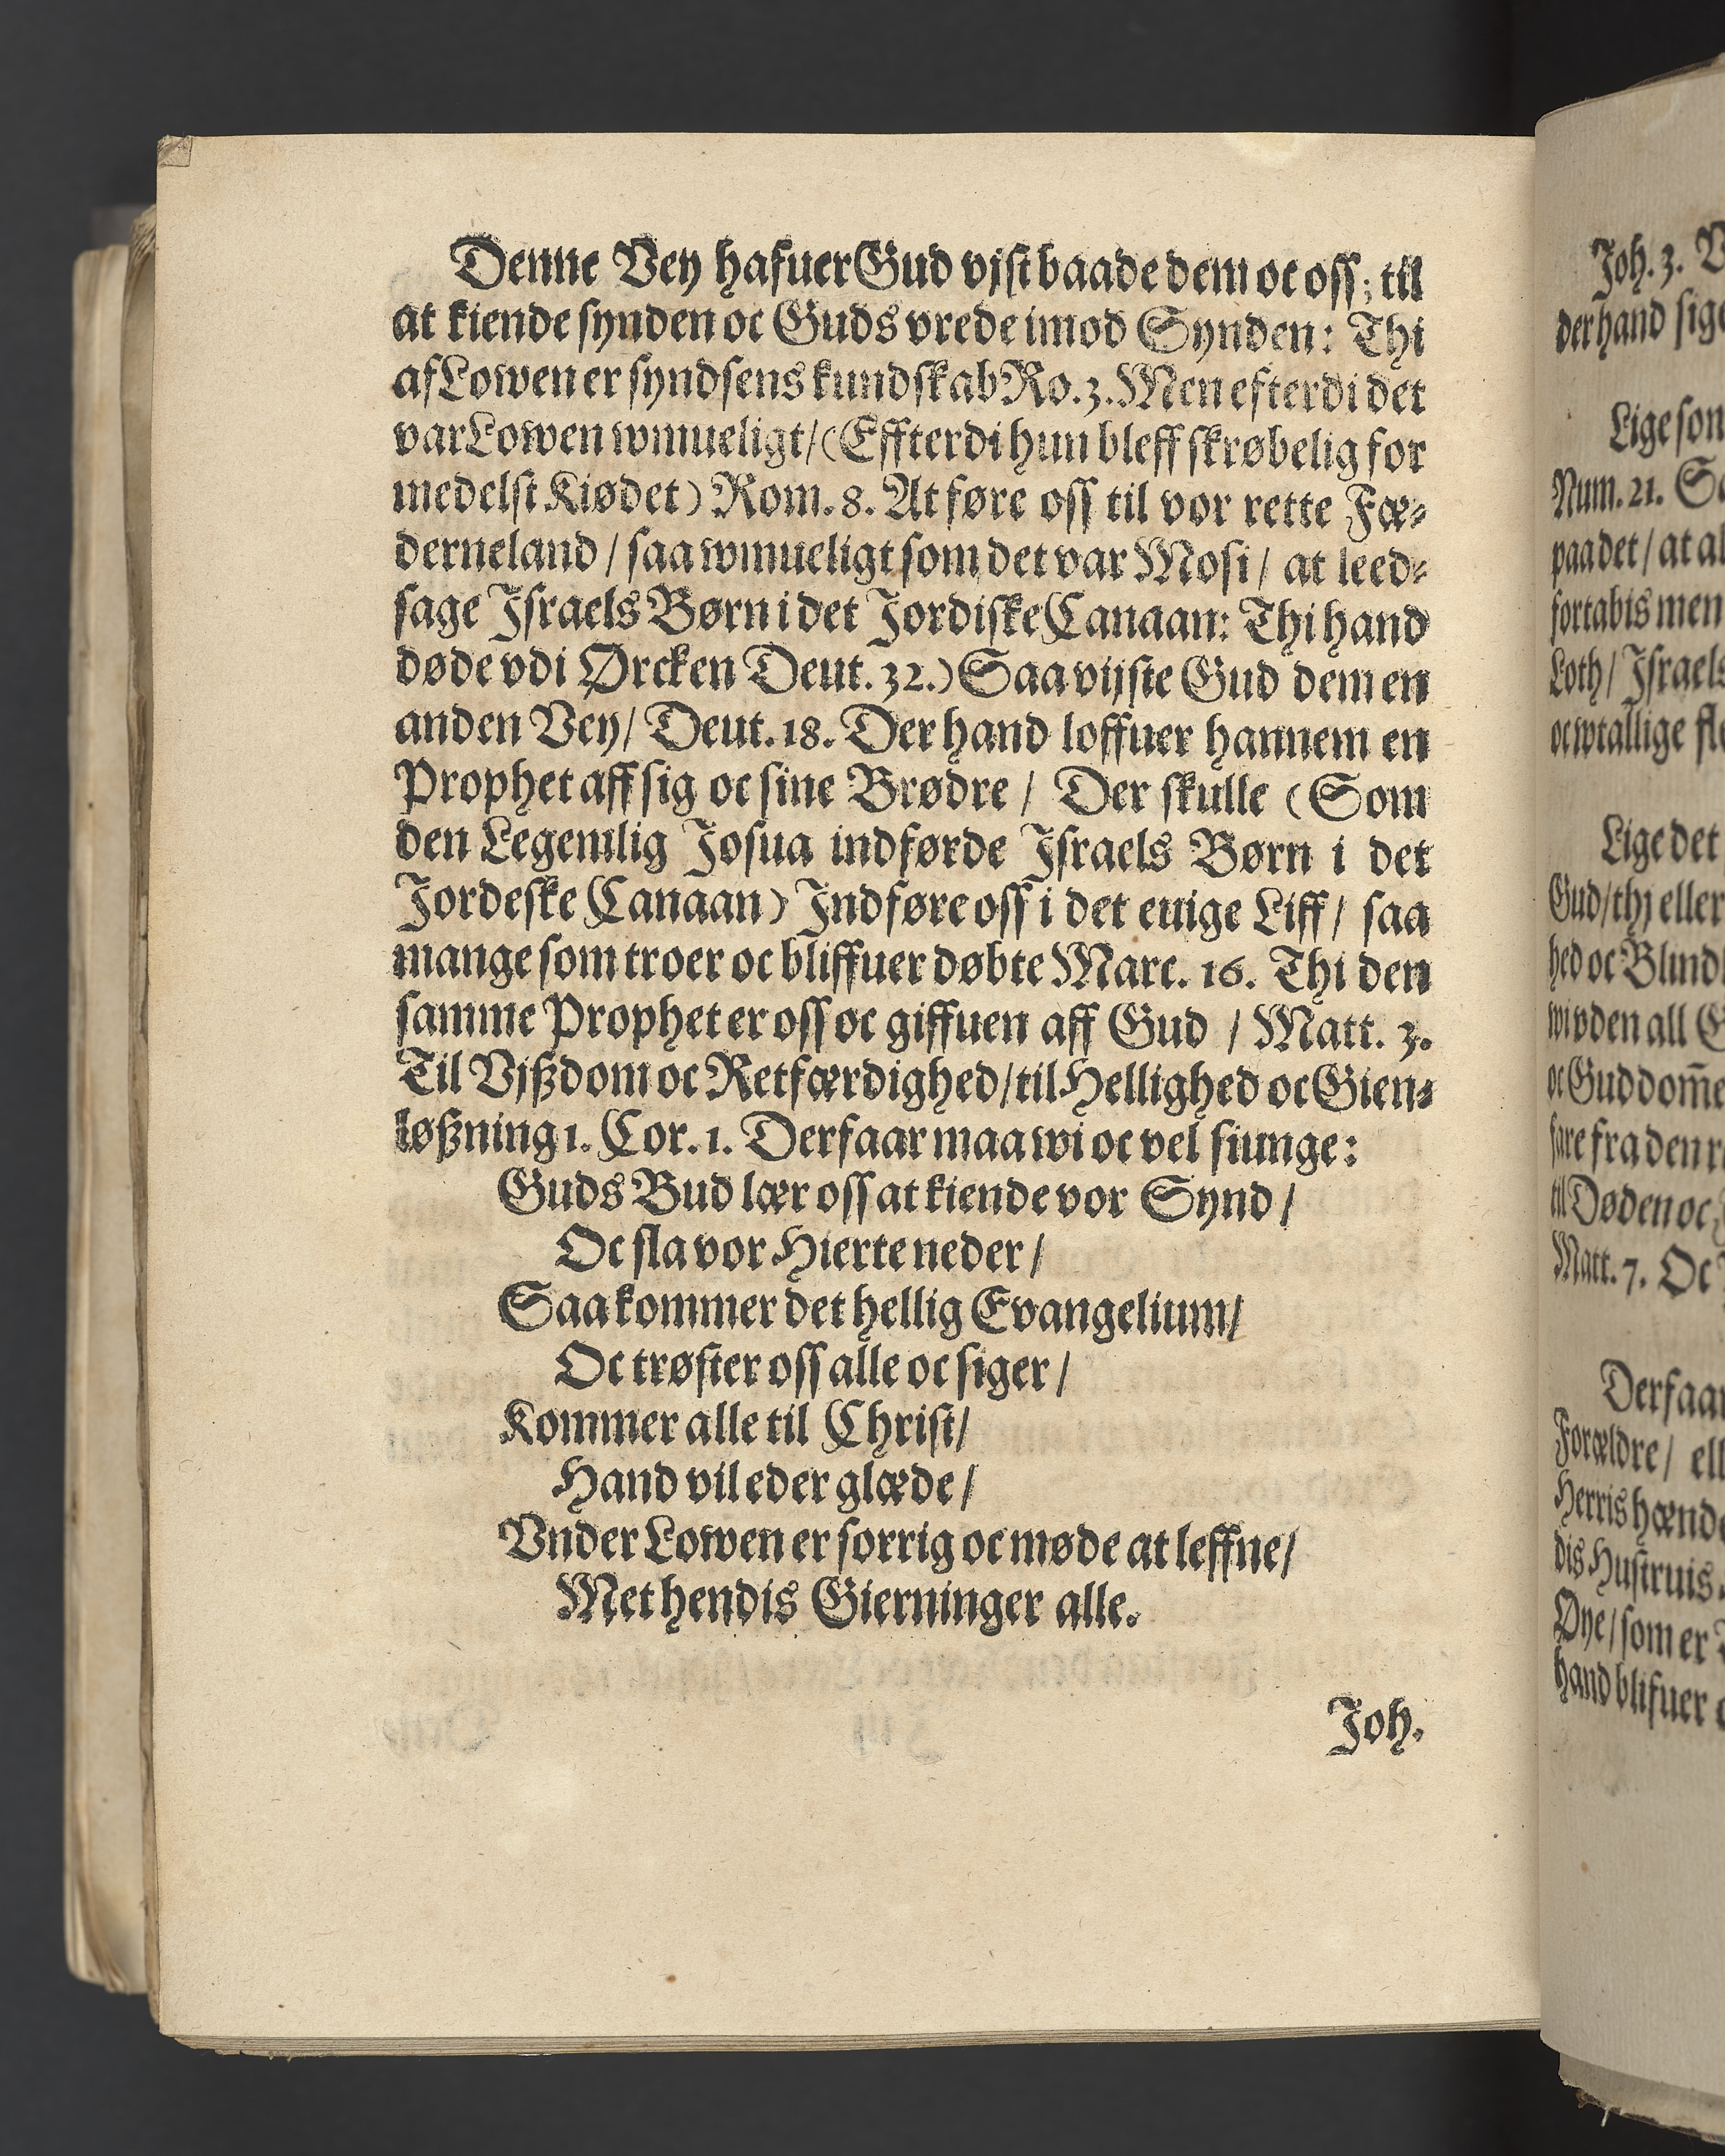 Denne Vey hafuer Gud vjst baade dem oc oss; til
at kiende synden oc Guds vrede imod Synden: Thi
af Lowen er syndsens kundskab Ro. 3. Men efterdi det
var Lowen wmueligt/ (Effterdi hun bleff skrøbelig for
medelst Kiødet) Rom. 8. At føre oss til vor rette Fæ-
derneland / saa wmueligt som det var Mosi / at leed-
sage Israels Børn i det Jordiske Canaan: Thi hand
døde vdi Ørcken Deut. 32.) Saa vijste Gud dem en
anden Vey/ Deut. 18. Der hand loffuer hannem en
Prophet aff sig oc sine Brødre / Der skulle (Som
den Legemlig Josua indførde Israels Børn i det
Jordeske Canaan) Indføre oss i det euige Liff / saa
mange som troer oc bliffuer døbte Marc. 16. Thi den
samme Prophet er oss oc giffuen aff Gud / Matt. 3.
Til Vjßdom oc Retfærdighed/ til Hellighed oc Gien-
løßning 1. Cor. 1. Derfaar maa wi oc vel siunge:
Guds Bud lær oss at kiende vor Synd /
Oc sla vor Hierte neder /
Saa kommer det hellig Evangelium/
Oc trøster oss alle oc siger /
Kommer alle til Christ/
Hand vil eder glæde /
Vnder Lowen er sorrig oc møde at leffne/
Met hendis Gierninger alle.
Joh.
Joh. 3.
der hand
Lige som
Num. 21.
paa det / at
fortabis men
Loth/ Israels
oc wtallige
Lige det
Gud/ thj eller
hed oc
wi vden all
oc Gud dom̄e
fare fra den
til Døden oc
Matt. 7. Oc
Derfaar
Forældre /
Herris
dis Hustruis
Øye/ som er
hand blifuer